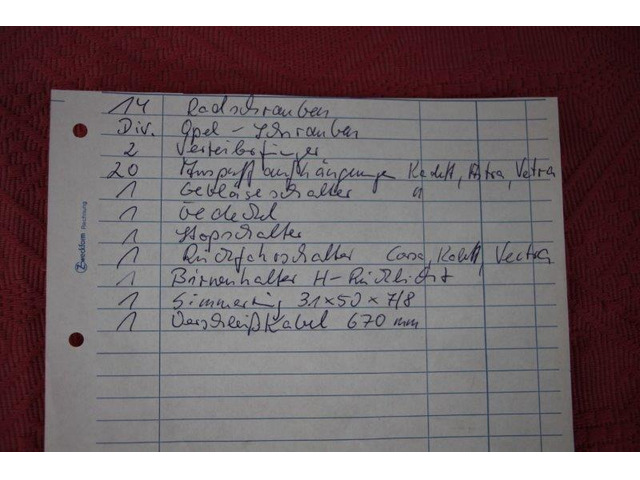 14 Radschrauben
Div. Opel - Schrauben
2 Verteilerfinger
20 Auspuffaufhängungen Kadett, Astra, Vetra
1 Gebläseschalter "
1 Öldeckel
1 Stopschalter
1 Rückfahrschalter Corsa, Kadett, Vectra
1 Birnenhalter H-Rücklicht
1 Simmering 31x50x7/8
1 Verschleißkabel 670 mm
Zweckform Rechnung